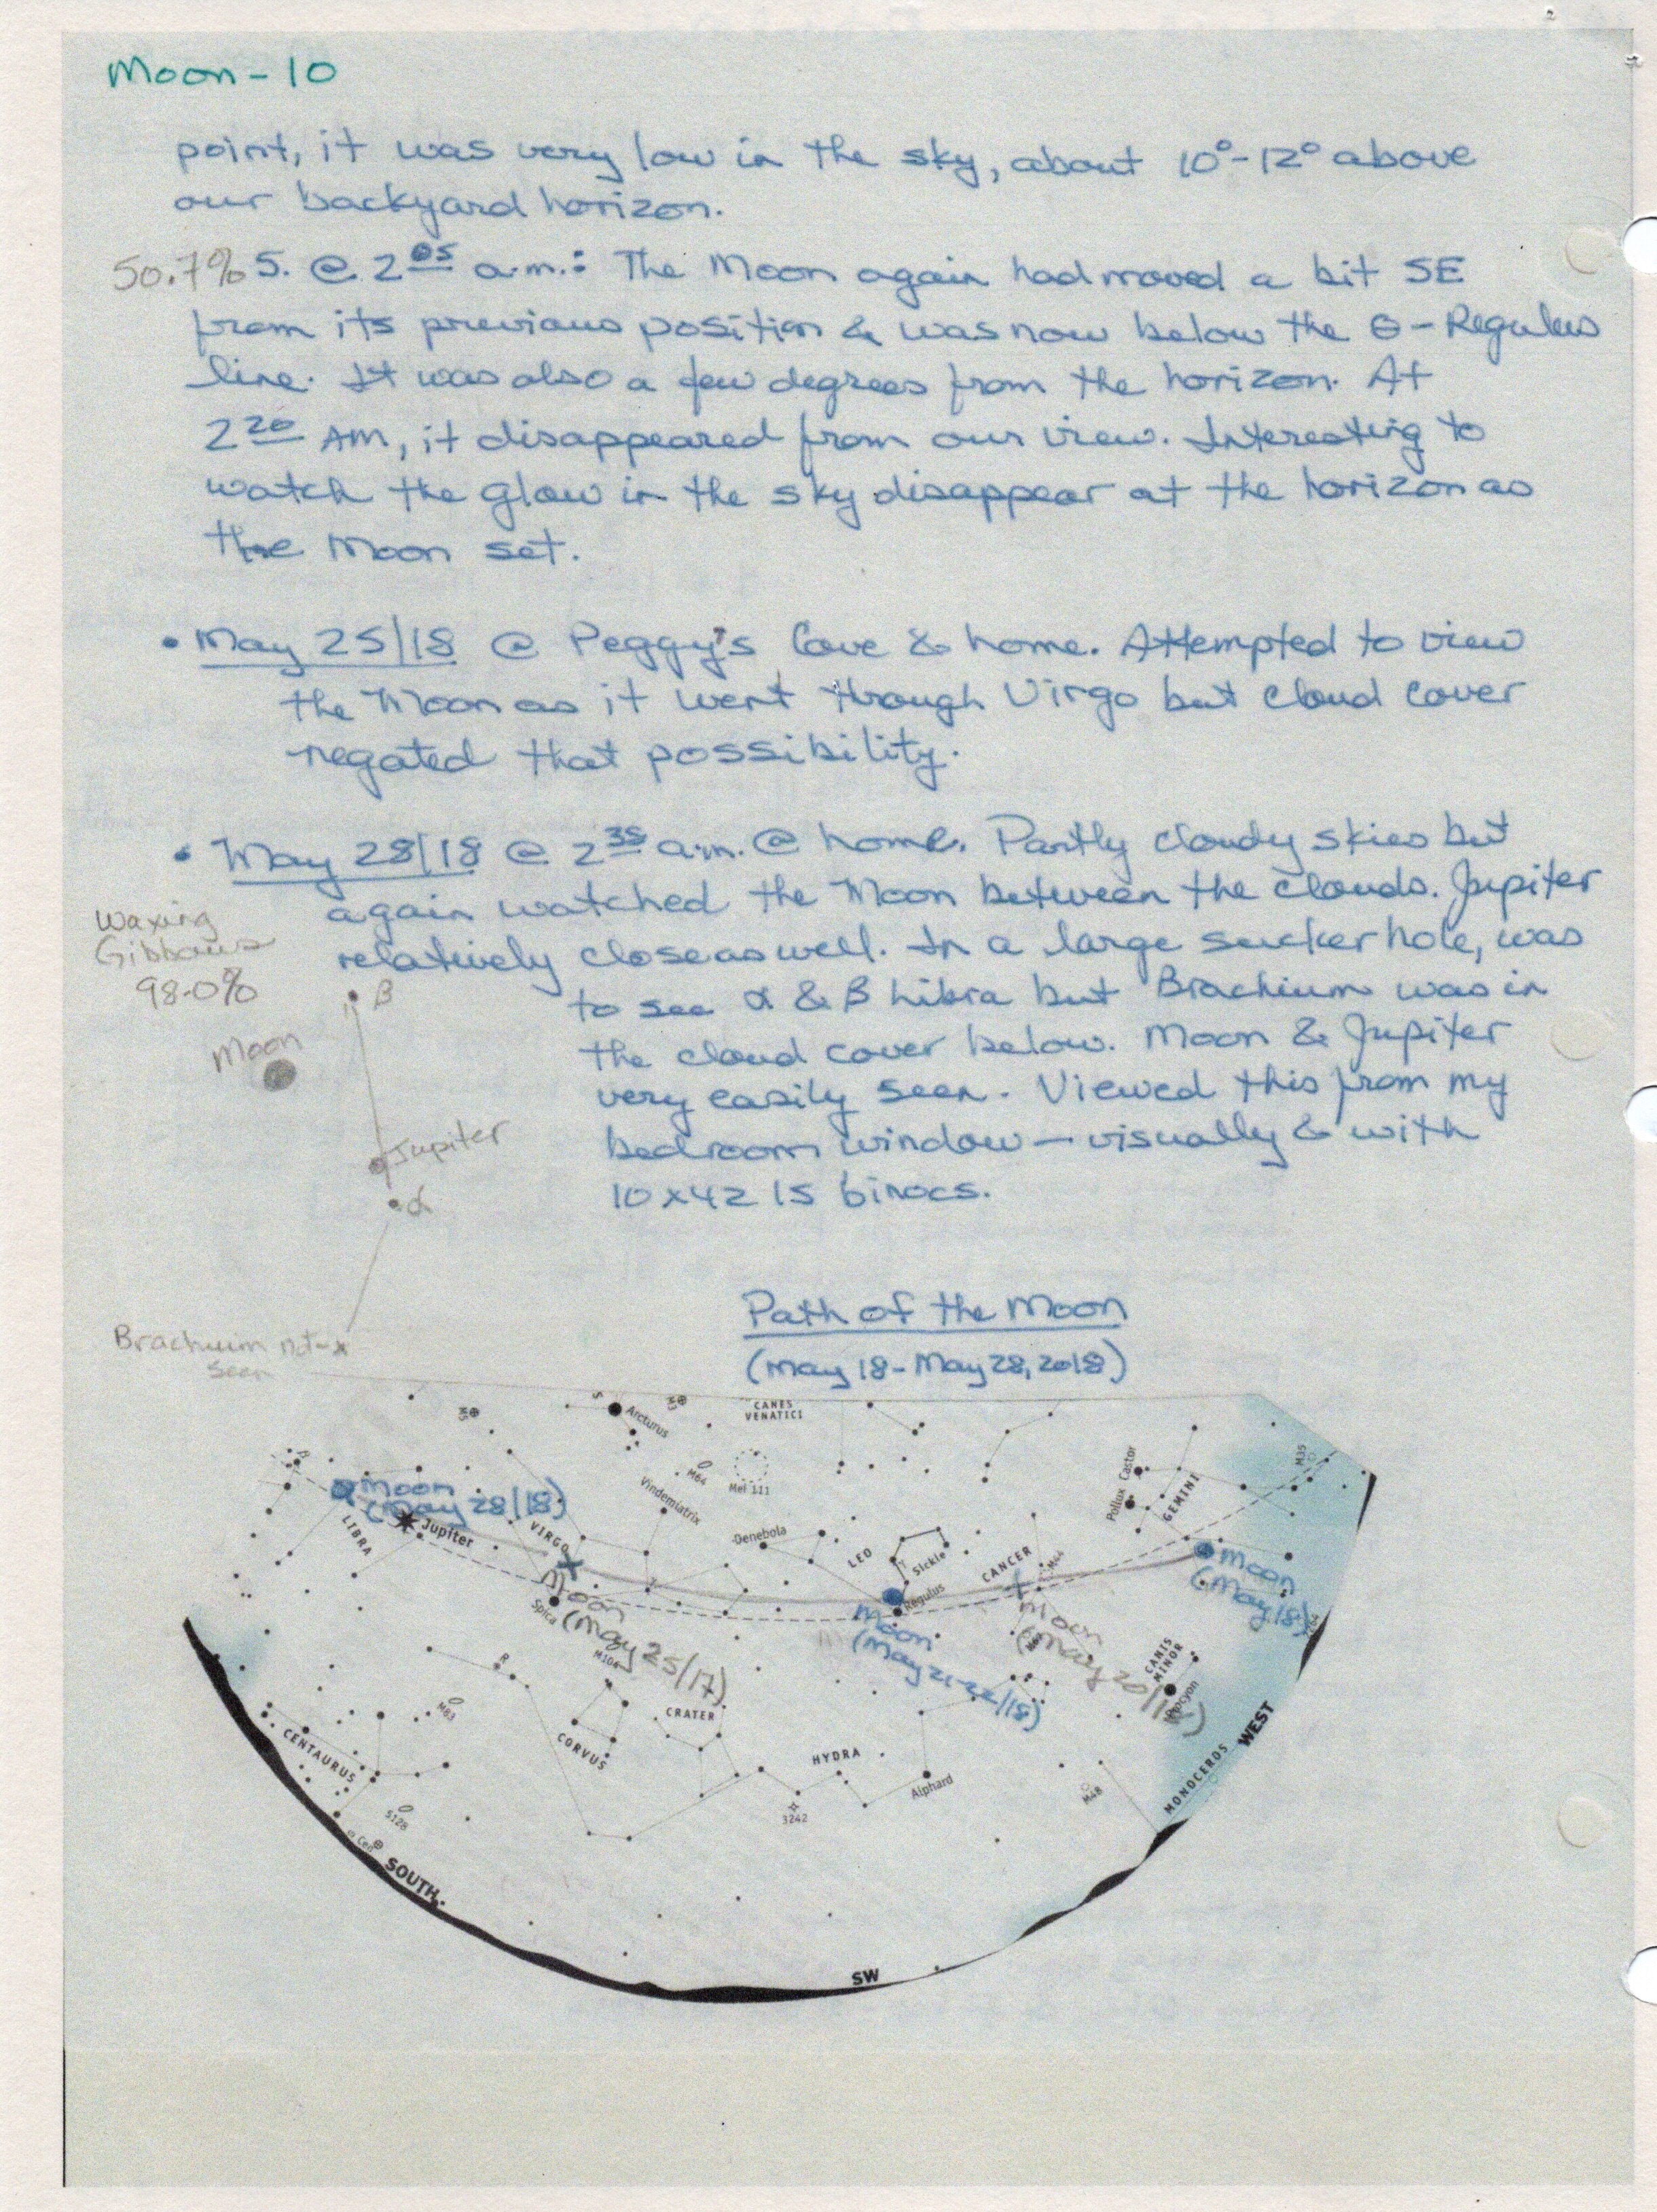 Moon-10
point, it was very low in the sky, about 10°-12° above
our backyard horizon.
50.7% 5. @ 2 05 a.m.: The Moon again had moved a bit SE
from its previous position & was now below the θ-Regulus
line. It was also a few degrees from the horizon. At
2 20 AM, it disappeared from our view. Interesting to
watch the glow in the sky disappear at the horizon as
the Moon set.
• May 25/18 @ Peggy's Cove & home. Attempted to view
the Moon as it went through Virgo but cloud cover
negated that possibility.
• May 28/18 @ 2 35 a.m. @ home. Partly cloudy skies but
again watched the Moon between the clouds. Jupiter
relatively close as well. In a large sucker hole, was
to see α & β Libra but Brachium was in
the cloud cover below. Moon & Jupiter
very easily seen. Viewed this from my
bedroom window - visually & with
10x42 IS binocs.
Waxing
Gibbous
98.0%
β
Moon
Jupiter
α
Brachium not
seen
Path of the Moon
(May 18-May 28, 2018)
M5
Arcturus
M3
CANES
VENATICI
M64
Mel 111
Vindemiatrix
Denebola
Castor
Pollux
GEMINI
M35
Moon
(May 28/18)
LIBRA
Jupiter
VIRGO
LEO
Sickle
γ
Regulus
CANCER
M44
Moon
(May 18)
Moon
(May 25/17)
Spica
Moon
(May 21-22/18)
Moon
CANIS
MINOR
Procyon
M104
R
M83
CENTAURUS
CORVUS
CRATER
HYDRA
Alphard
3242
M48
MONOCEROS
WEST
5128
ω Cen
SOUTH
SW